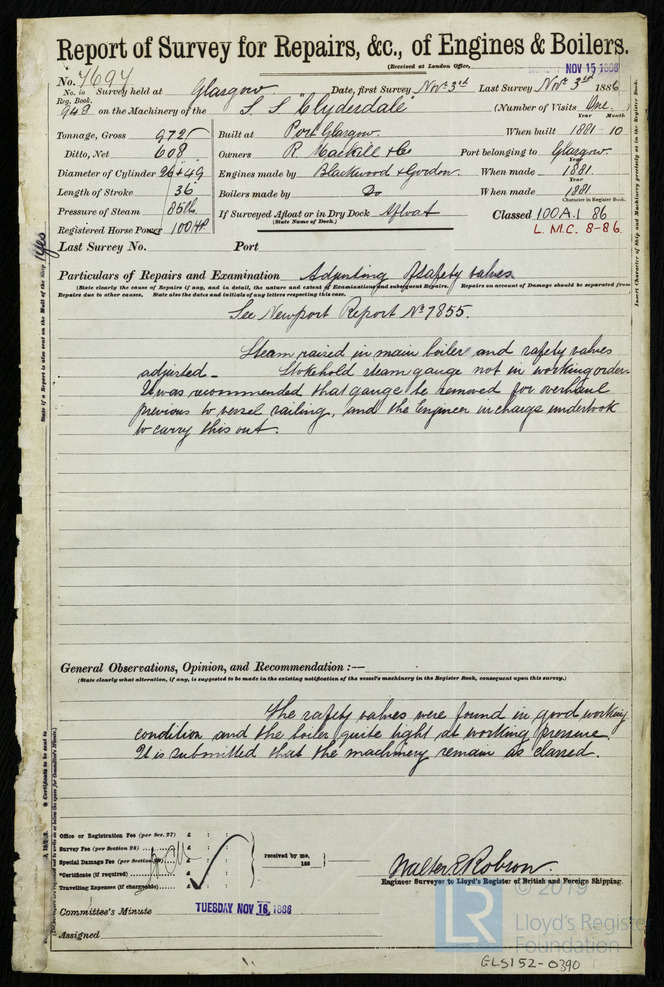 Report of Survey for Repairs, &c., of Engines & Boilers.
(Received at London Office, NOV 15 1886
No. 7697
No. in Reg. Book. 943 Survey held at Glasgow Date, first Survey Novr 3rd Last Survey Novr 3rd 1886
on the Machinery of the S. S. "Clydesdale" (Number of Visits One.
Tonnage, Gross 972 Built at Port Glasgow. When built Year 1881 Month 10
Ditto, Net 608 Owners R. Mackill & Co Port belonging to Glasgow.
Diameter of Cylinder 26 + 49 Engines made by Blackwood & Gordon. When made Year 1881
Length of Stroke 36 Boilers made by Do When made Year 1881
Pressure of Steam 85 lb If Surveyed Afloat or in Dry Dock Afloat (State Name of Dock.) Character in Register Book. Classed 100 A.1 86
Registered Horse Power 100 HP L. M. C. 8-86
Last Survey No. Port
Particulars of Repairs and Examination Adjusting of safety valves
(State clearly the cause of Repairs if any, and in detail, the nature and extent of Examinations and subsequent Repairs. Repairs on account of Damage should be separated from
Repairs due to other causes. State also the dates and initials of any letters respecting this case.
See Newport Report No 7855.
Steam raised in main boilers and safety valves
adjusted – Stokehold steam gauge not in working order.
It was recommended that gauge be removed for overhaul
previous to vessel sailing, and the Engineer in charge undertook
to carry this out.
General Observations, Opinion, and Recommendation :—
(State clearly what alteration, if any, is suggested to be made in the existing notification of the vessel's machinery in the Register Book, consequent upon this survey.)
The safety valves were found in good working
condition and the boiler quite tight at working pressure.
It is submitted that the machinery remain as classed.
Office or Registration Fee (per Sec. 27) £ : :
Survey Fee (per Section 28) £ : :
Special Damage Fee (per Section 28) £ : : received by me,
*Certificate (if required) £ : : 188
Travelling Expenses (if chargeable) £
Walter E Robson.
Engineer Surveyor to Lloyd's Register of British and Foreign Shipping.
Committee's Minute TUESDAY NOV 16 1886
Assigned
State if a Report is also sent on the Hull of the Ship Yes
Insert Character of Ship and Machinery precisely as in the Register Book.
© 2019
LR Lloyd's Register
Foundation
GLS152-0390